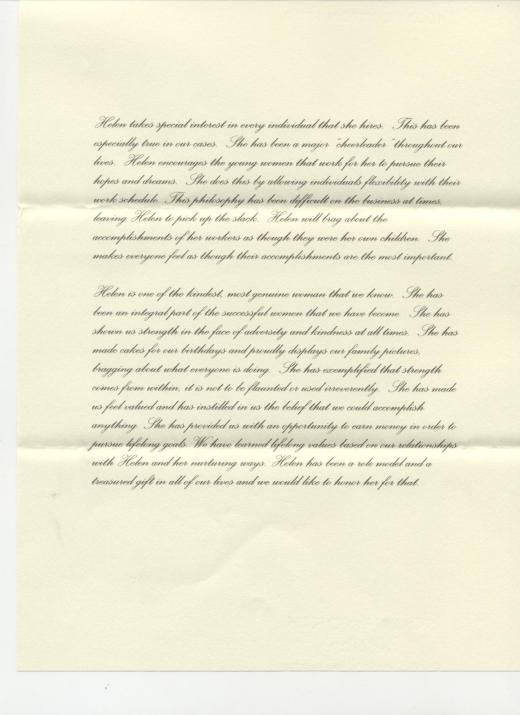 Helen takes special interest in every individual that she hires. This has been
especially true in our cases. She has been a major "cheerleader" throughout our
lives. Helen encourages the young women that work for her to pursue their
hopes and dreams. She does this by allowing individuals flexibility with their
work schedule. This philosophy has been difficult on the business at times,
leaving Helen to pick up the slack. Helen will brag about the
accomplishments of her workers as though they were her own children. She
makes everyone feel as though their accomplishments are the most important.
Helen is one of the kindest, most genuine woman that we know. She has
been an integral part of the successful women that we have become. She has
shown us strength in the face of adversity and kindness at all times. She has
made cakes for our birthdays and proudly displays our family pictures,
bragging about what everyone is doing. She has exemplified that strength
comes from within, it is not to be flaunted or used irreverently. She has made
us feel valued and has instilled in us the belief that we could accomplish
anything. She has provided us with an opportunity to earn money in order to
pursue lifelong goals. We have learned lifelong values based on our relationships
with Helen and her nurturing ways. Helen has been a role model and a
treasured gift in all of our lives and we would like to honor her for that.